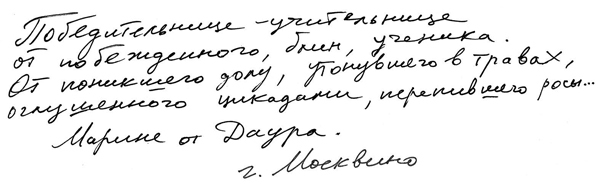 Победительнице - учительнице
от побежденного, блин, ученика.
От поникшего долу, тонувшего в травах,
оглушенного цикадами, перепившего росы...
Марине от Даура.
г. Москвино